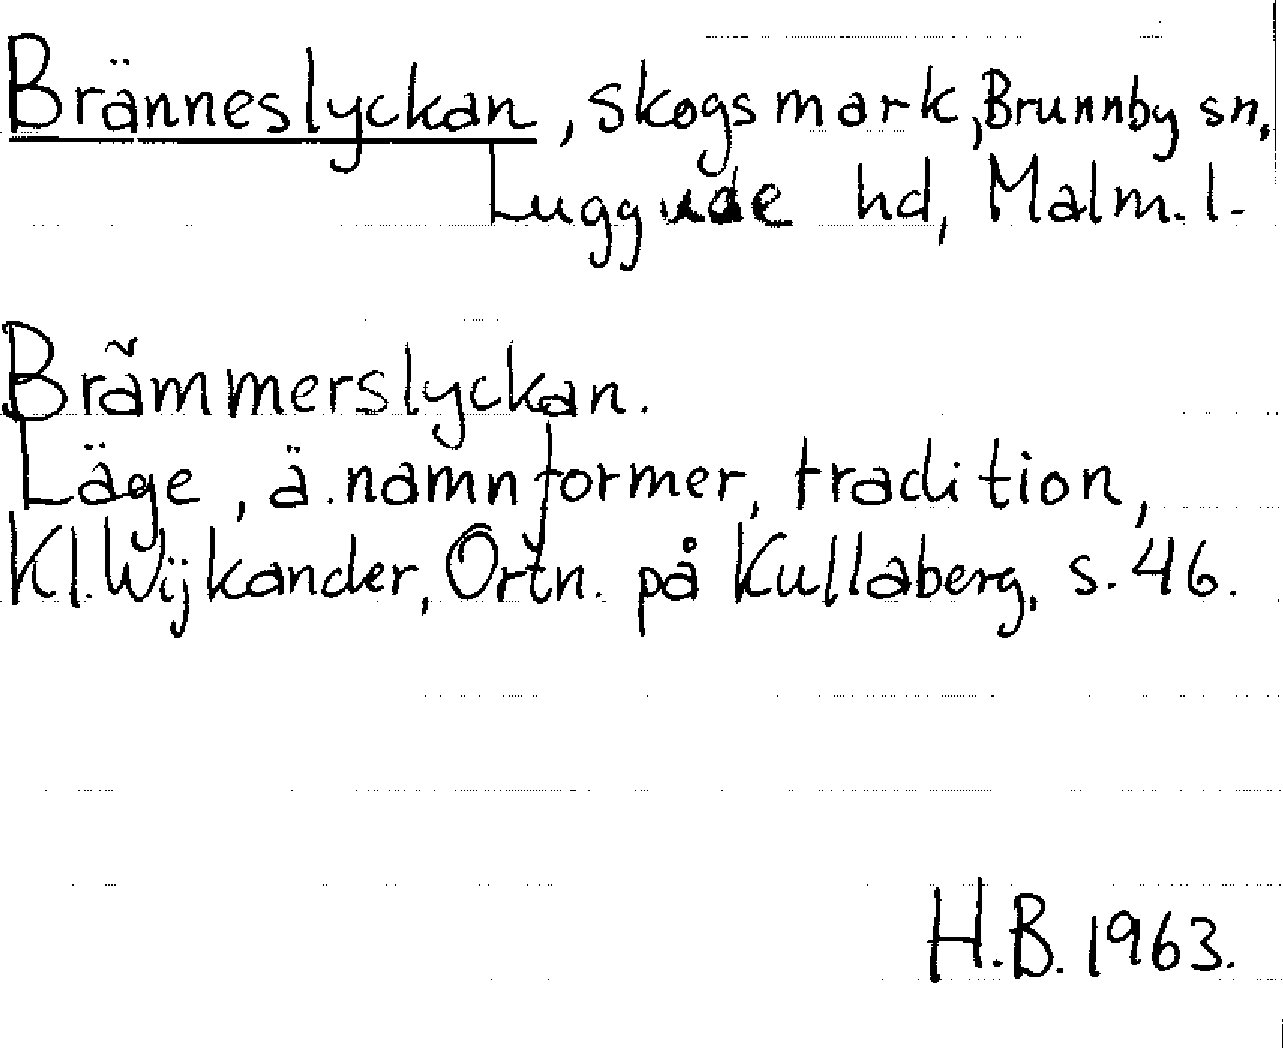 Bränneslyckan, skogsmark, Brunnby sn,
Luggude hd, Malm. l.
Brämmerslyckan.
Läge, ä. namnformer, tradition,
Kl. Wijkander, Ortn. på Kullaberg, s. 46.
H.B. 1963.